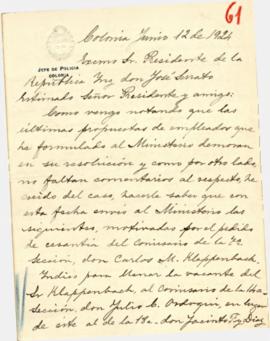 61
Colonia Junio 12 de 1924
JEFE DE POLICIA
COLONIA
Exmo Sr. Presidente de la
República Ing don José Serrato
Estimado Señor Presidente y amigo:
Como vengo notando que las
últimas propuestas de empleados que
he formulado al Ministerio demoran
en su resolución y como por otro lado,
no faltan comentarios al respecto, he
creido del caso, hacerle saber que con
esta fecha envio al Ministerio las
siguientes, motivadas por el pedido
de cesantia del Comisario de la 7a
Sección, don Carlos M. Klappenbach,
Indico para llenar la vacante del
Sr Klappenbach, al Comisario de la
Sección, don Julio C. Ordoqui, en lugar
de este al de la 13a don Jacinto